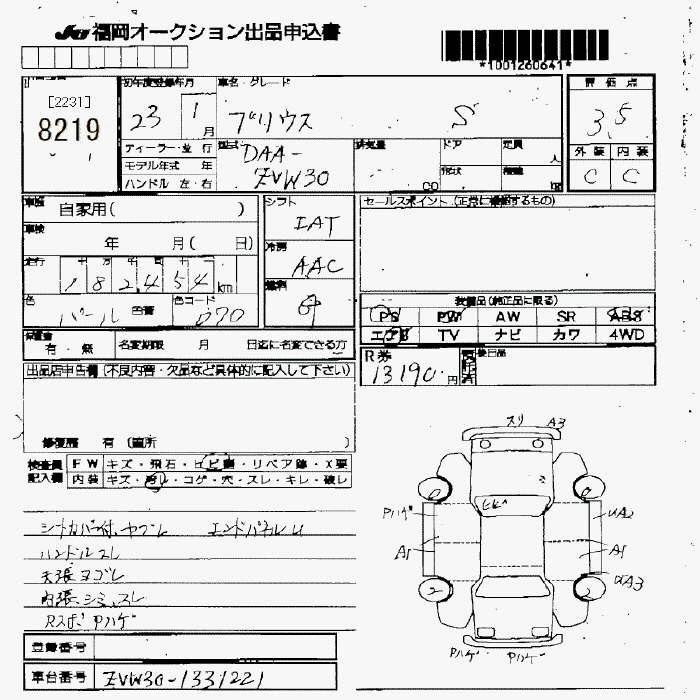 JU 福岡オークション出品申込書
*1001260641*
[2231]
8219
初年度登録年月
23 1月
車名・グレード
プリウス S
評価点
3.5
ディーラー・並行
モデル年式 年
ハンドル 左・右
型式
DAA-
ZVW30
排気量
CC
ドア
形状
定員
人
積載
kg
外装 内装
C C
車歴
自家用( )
車検
年 月( 日)
走行
十 万 千 百 十
182,454 km
色
パール
色替
色コード
070
シフト
IAT
冷房
AAC
燃料
ガ
セールスポイント (正常に作動するもの)
装備品(純正品に限る)
PS PW AW SR ABS
エアB TV ナビ カワ 4WD
保証書
有・無
名変期限 月 日迄に名変できる方
R券
13190円
後日品
出品店申告欄 (不良内容・欠品など具体的に記入して下さい)
修復歴 有 (箇所 )
検査員
記入欄
FW キズ・飛石・ヒビ割・リペア跡・X要
内装 キズ・汚レ・コゲ・穴・スレ・キレ・破レ
シートカバー付、ヤブレ エンドパネルU
ハンドルスレ
天張ヨゴレ
内張シミ、スレ
Rスポ Pハゲ
スリ A3
ヒビ
Pハゲ
UA2
A1
A1
UA3
2
2
Pハゲ Pハゲ
登録番号
車台番号 ZVW30-1331221